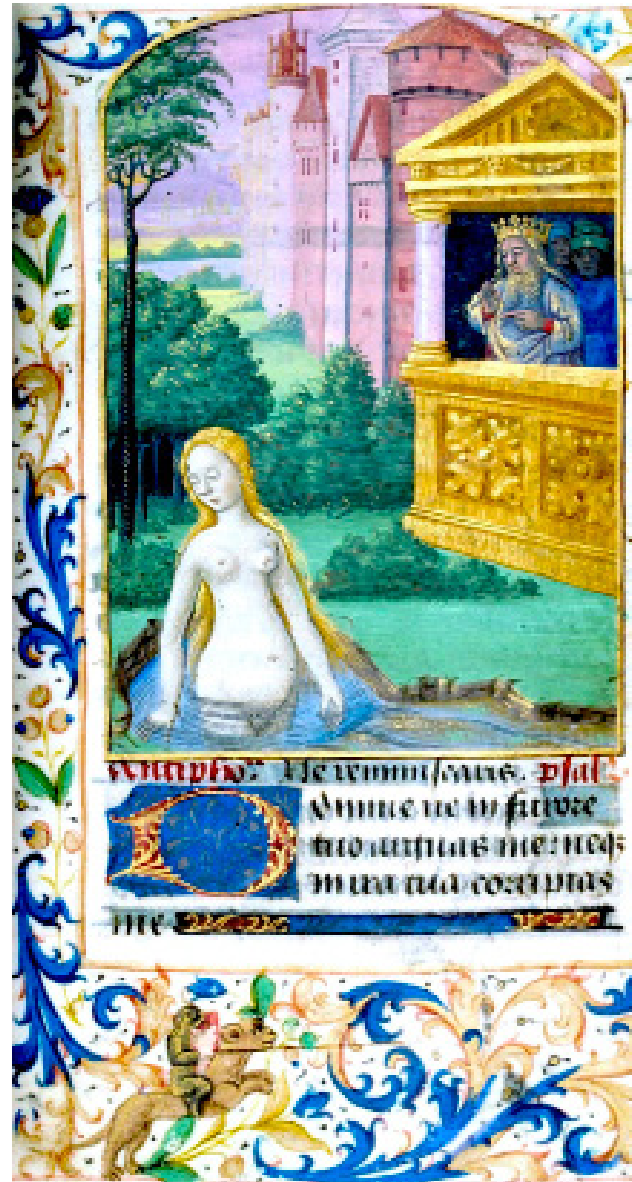 Ne reminiscaris. psal
Domine ne in furore
tuo arguas me: neqꝫ
in ira tua corripias
me